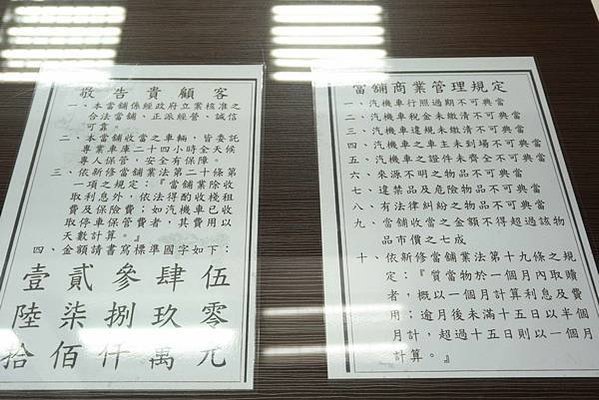 敬告貴顧客
一、本當舖係經政府立案核准之
合法當舖、正派經營、誠信
可靠。
二、本當舖收當之車輛，皆委託
專業車庫二十四小時全天候
專人保管，安全有保障。
三、依新修當舖業法第二十條第
一項之規定：『當舖業除收
取利息外，依法得酌收棧租
費及保險費；如汽機車已收
取停車保管費者，其費用以
天數計算。』
四、金額請書寫標準國字如下：
壹貳參肆伍
陸柒捌玖零
拾佰仟萬元
當舖商業管理規定
一、汽機車行照過期不可典當
二、汽機車稅金未繳清不可典當
三、汽機車違規未繳清不可典當
四、汽機車之車主未到場不可典當
五、汽機車之證件未齊全不可典當
六、來源不明之物品不可典當
七、違禁品及危險物品不可典當
八、有法律糾紛之物品不可典當
九、當舖收當之金額不得超過該物
品市價之七成
十、依新修當舖業法第十九條之規
定：『質當物於一個月內取贖
者，概以一個月計算利息及費
用；逾月後未滿十五日以半個
月計，超過十五日則以一個月
計算。』